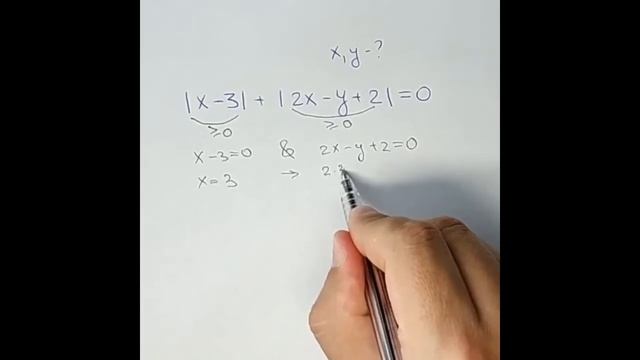 x, y - ?
|x-3| + |2x-y+2| = 0
≥0 ≥0
x-3=0 & 2x-y+2=0
x=3 → 2·3